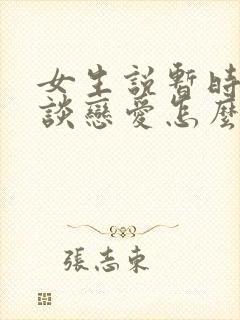 女生說暫時
談戀愛怎麼
張志東